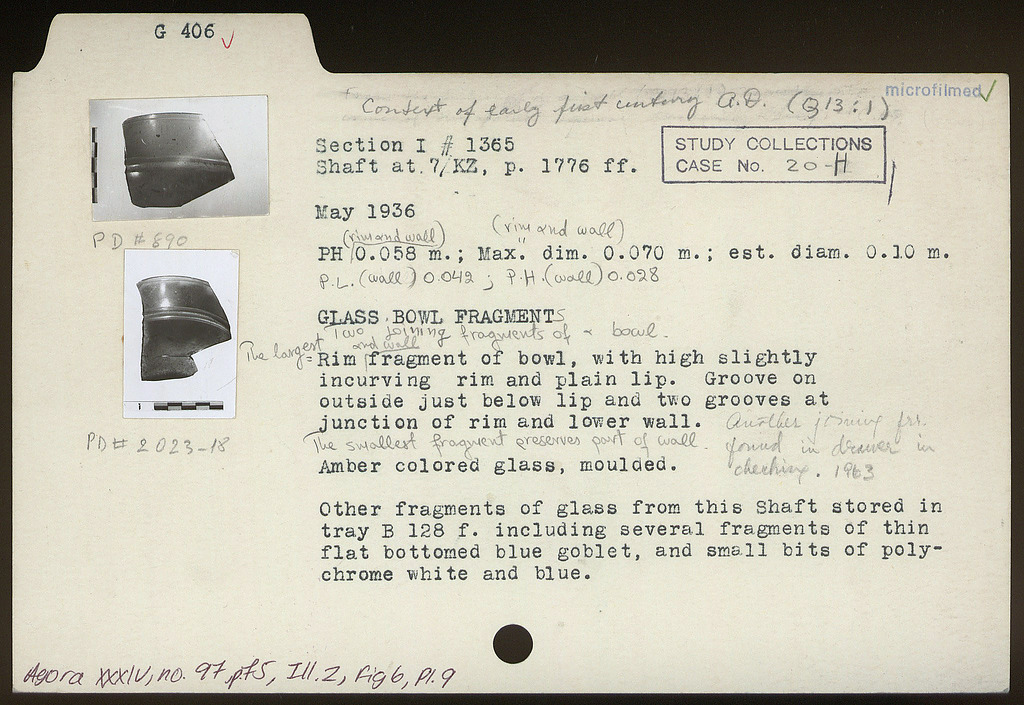 G 406 ✓
microfilmed ✓
Context of early first century A.D. (Q13:1)
Section I # 1365
Shaft at 7/KZ, p. 1776 ff.
STUDY COLLECTIONS
CASE No. 20-H
May 1936
(rim and wall) (rim and wall)
PH 0.058 m.; Max. dim. 0.070 m.; est. diam. 0.10 m.
P.L. (wall) 0.042 ; P.H. (wall) 0.028
PD # 890
GLASS BOWL FRAGMENTS
Two joining fragments of a bowl.
The largest and wall
Rim fragment of bowl, with high slightly
incurving rim and plain lip. Groove on
outside just below lip and two grooves at
junction of rim and lower wall.
The smallest fragment preserves part of wall.
Amber colored glass, moulded.
Another joining frr.
found in drawer in
checking. 1963
PD # 2023-18
1
Other fragments of glass from this Shaft stored in
tray B 128 f. including several fragments of thin
flat bottomed blue goblet, and small bits of poly-
chrome white and blue.
Agora XXXIV, no. 97, pf5, Ill. 2, Fig 6, Pl. 9